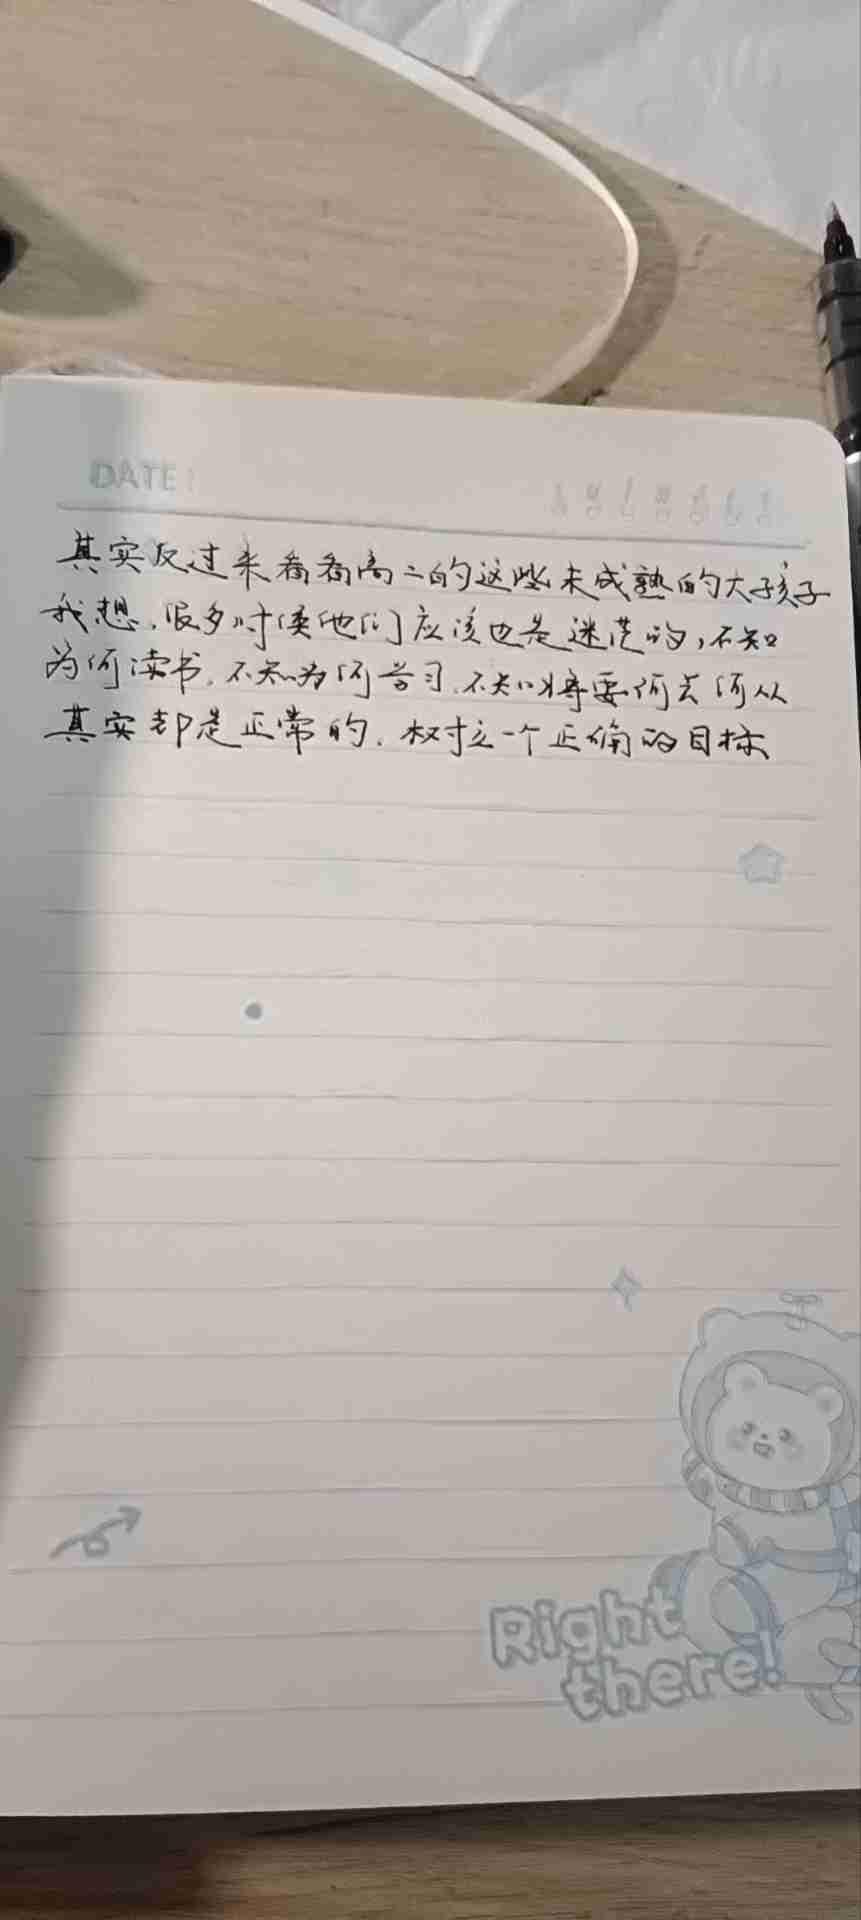 DATE:
其实反过来看看高二的这些未成熟的大孩子
我想,很多时候他们应该也是迷茫的,不知
为何读书,不知为何学习,不知将要何去何从
其实都是正常的,树立一个正确的目标
Right
there!